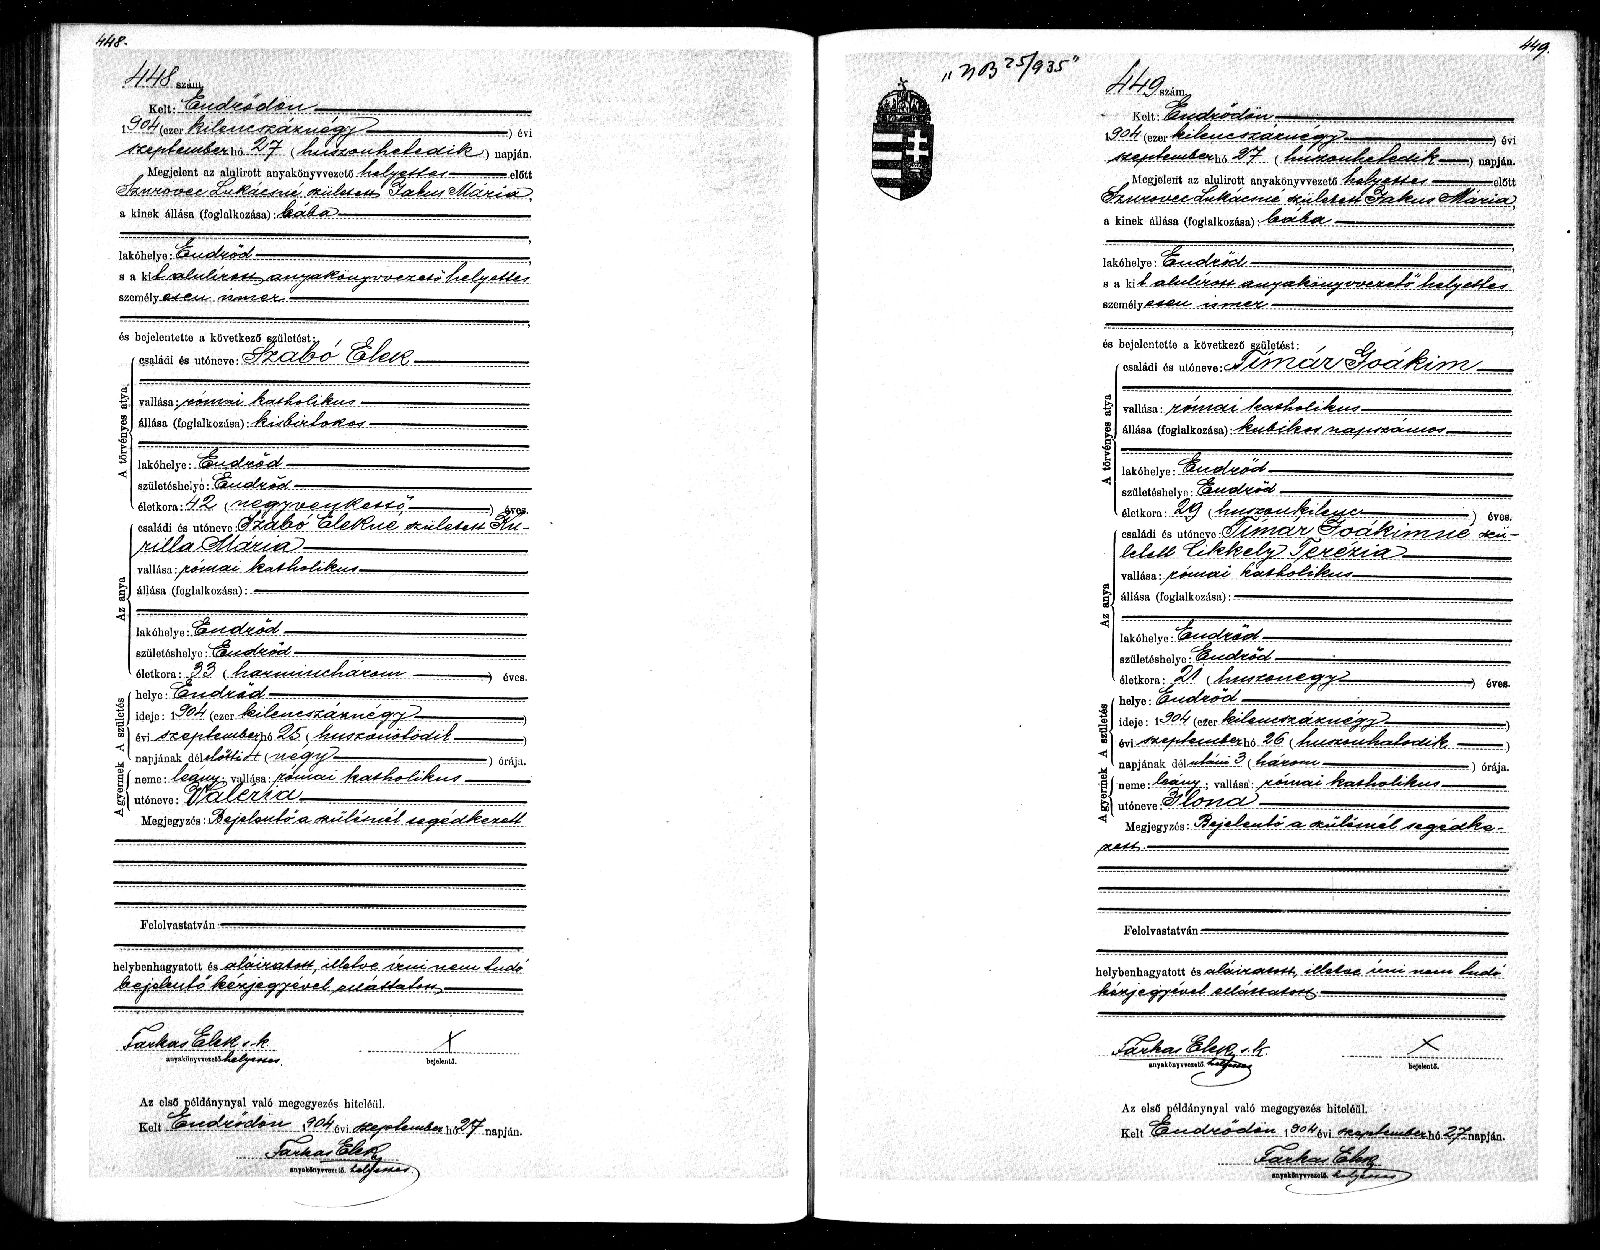 448.
448 szám.
Kelt: Endrődön
1904 (ezer kilencszáznégy) évi
szeptember hó 27 (huszonhetedik) napján.
Megjelent az alulirott anyakönyvvezető helyettes előtt
Szurovec Lukácsné született Jakus Mária,
a kinek állása (foglalkozása): bába
lakóhelye: Endrőd
s a kit alulírott anyakönyvvezető helyettes
személyesen ismer
és bejelentette a következő születést:
A törvényes atya
családi és utóneve: Szabó Elek
vallása: római katholikus
állása (foglalkozása): kisbirtokos
lakóhelye: Endrőd
születéshelye: Endrőd
életkora: 42 (negyvenkettő) éves.
Az anya
családi és utóneve: Szabó Elekné született Ku-
rilla Mária
vallása: római katholikus
állása (foglalkozása):
lakóhelye: Endrőd
születéshelye: Endrőd
életkora: 33 (harminchárom) éves.
A születés
helye: Endrőd
ideje: 1904 (ezer kilencszáznégy)
évi szeptember hó 25 (huszonötödik)
napjának délelőtti 4 (négy) órája.
A gyermek
neme: leány; vallása: római katholikus
utóneve: Valéria
Megjegyzés: Bejelentő a szülésnél segédkezett
Felolvastatván
helybenhagyatott és aláiratott, illetve írni nem tudó
bejelentő kézjegyével elláttatott
Farkas Elek s.k. X
anyakönyvvezető helyettes. bejelentő.
Az első példánynyal való megegyezés hiteléül.
Kelt Endrődön 1904 évi szeptember hó 27 napján.
Farkas Elek
anyakönyvvezető. helyettes
"NB 25/935"
449.
449 szám.
Kelt: Endrődön
1904 (ezer kilencszáznégy) évi
szeptember hó 27 (huszonhetedik) napján.
Megjelent az alulirott anyakönyvvezető helyettes előtt
Szurovec Lukácsné született Jakus Mária,
a kinek állása (foglalkozása): bába
lakóhelye: Endrőd
s a kit alulírott anyakönyvvezető helyettes
személyesen ismer
és bejelentette a következő születést:
A törvényes atya
családi és utóneve: Tímár Joákim
vallása: római katholikus
állása (foglalkozása): kubikos napszámos
lakóhelye: Endrőd
születéshelye: Endrőd
életkora: 29 (huszonkilenc) éves.
Az anya
családi és utóneve: Tímár Joákimné szü-
letett Cikkely Terézia
vallása: római katholikus
állása (foglalkozása):
lakóhelye: Endrőd
születéshelye: Endrőd
életkora: 21 (huszonegy) éves.
A születés
helye: Endrőd
ideje: 1904 (ezer kilencszáznégy)
évi szeptember hó 26 (huszonhatodik)
napjának délutáni 3 (három) órája.
A gyermek
neme: leány; vallása: római katholikus
utóneve: Ilona
Megjegyzés: Bejelentő a szülésnél segédke-
zett.
Felolvastatván
helybenhagyatott és aláiratott, illetve írni nem tudó
kézjegyével elláttatott
Farkas Elek s.k. X
anyakönyvvezető. helyettes bejelentő.
Az első példánynyal való megegyezés hiteléül.
Kelt Endrődön 1904 évi szeptember hó 27 napján.
Farkas Elek
anyakönyvvezető. helyettes